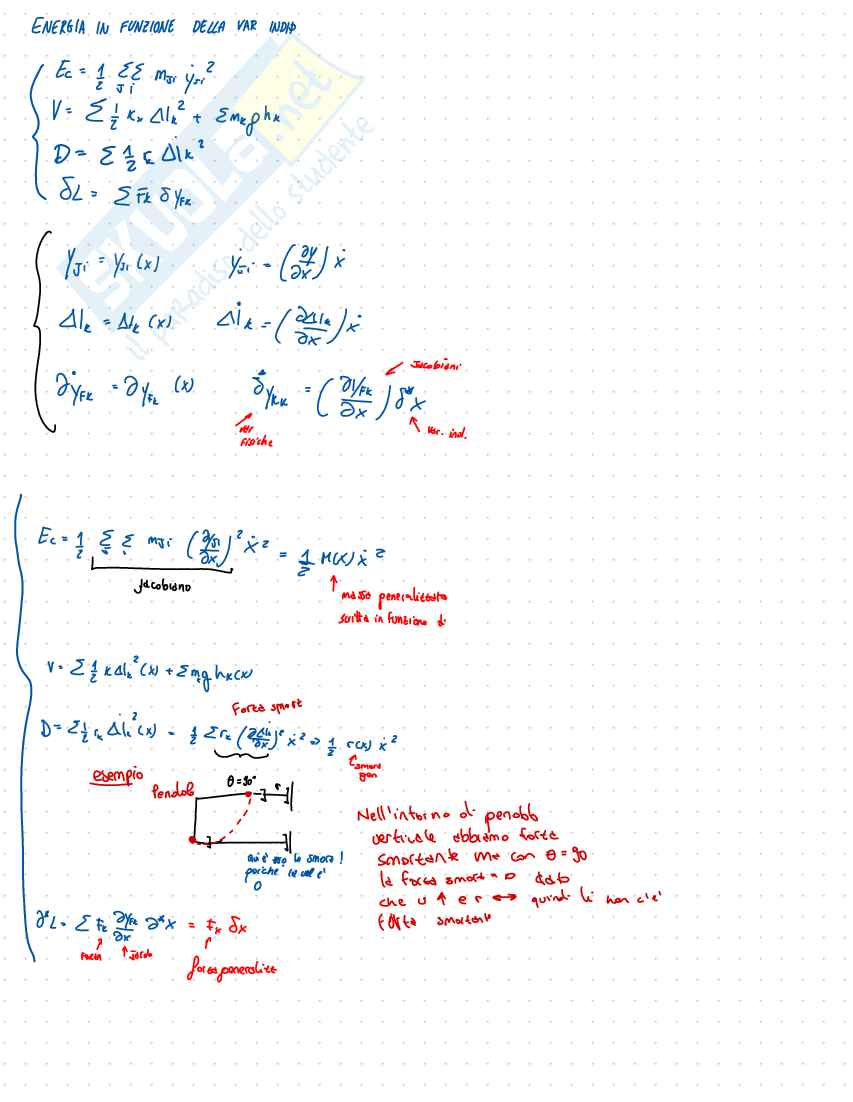 ENERGIA IN FUNZIONE DELLA VAR INDIP
Ec = 1/2 ΣΣ_{ji} m_{ji} ẏ_{ji}²
V = Σ 1/2 k_k Δl_k² + Σ m_k g h_k
D = Σ 1/2 r_k Δl̇_k²
δL = Σ F_k δy_{Fk}
y_{ji} = y_{ji}(x) ẏ_{ji} = (∂y/∂x) ẋ
Δl_k = Δl_k (x) Δl̇_k = (∂Δl_k/∂x) ẋ
Jacobiani
∂*y_{Fk} = ∂y_{Fk} (x) δ*y_{kk} = (∂y_{Fk}/∂x) δ*x
var fisiche
var. ind.
Ec = 1/2 Σ Σ m_{ji} (∂y_{ji}/∂x)² ẋ² = 1/2 M(x) ẋ²
Jacobiano
massa generalizzata
scritta in funzione di
V = Σ 1/2 k Δl_k²(x) + Σ m_k g h_k(x)
Forza smort
D = Σ 1/2 r_k Δl̇_k²(x) = 1/2 Σ r_k (∂Δl_k/∂x)² ẋ² => 1/2 r(x) ẋ²
smorz gen
esempio
Pendolo
θ = 90°
r
qui è lo smorz !
poiche la vel e'
0
Nell'intorno di pendolo
verticale abbiamo forza
smortante ma con θ = 90
la forza smort = 0 dato
che v ↑ e r ↔ quindi li non c'e'
forza smortante
∂*L = Σ F_k ∂y_{Fk}/∂x ∂*x = F_x δx
forza
Jacob
forza generalizz